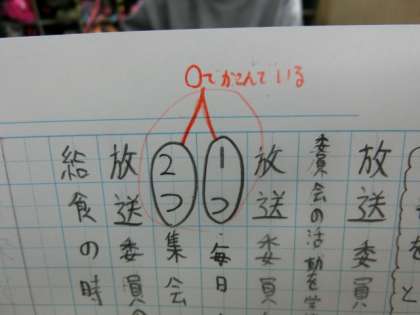 〇でかこんでいる
放送委員
委員会の活動を
放送委員
1つ・毎日
2つ集会
放送委員の
給食の時